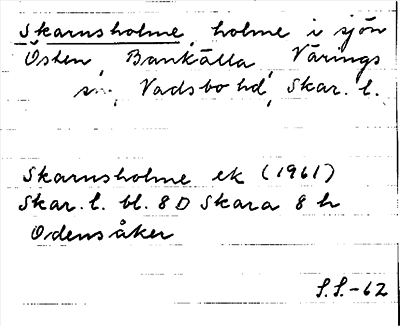 Skarnsholme, holme i sjön
Östen, Bankälla, Värings
sn, Vadsbo hd, Skar. l.
Skarnsholme ek (1961)
Skar. l. bl. 8 D Skara 8 h
Odensåker
S.S.-62